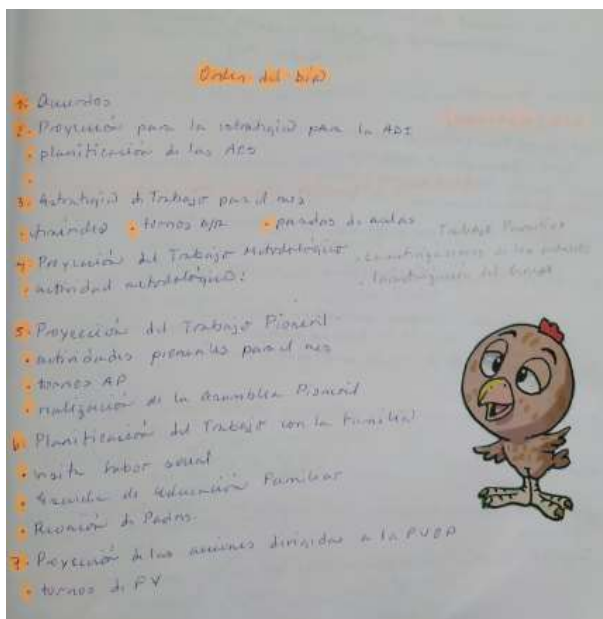 Orden del Día
1. Acuerdos
2. Proyección para la estrategia para la ADI
• planificación de las ACS
•
3. Estrategia de Trabajo para el mes
• • turnos • pasadas de aulas
Trabajo
4. Proyección del Trabajo Metodológico
• actividad metodológica:
5. Proyección del Trabajo Pioneril
• actividades pioneriles para el mes
• turnos AP
• realización de la asamblea Pioneril
6. Planificación del Trabajo con la Familia
• visita labor social
• Escuela de Educación Familiar
• Reunión de Padres.
7. Proyección de las acciones dirigidas a la
• turnos de PV